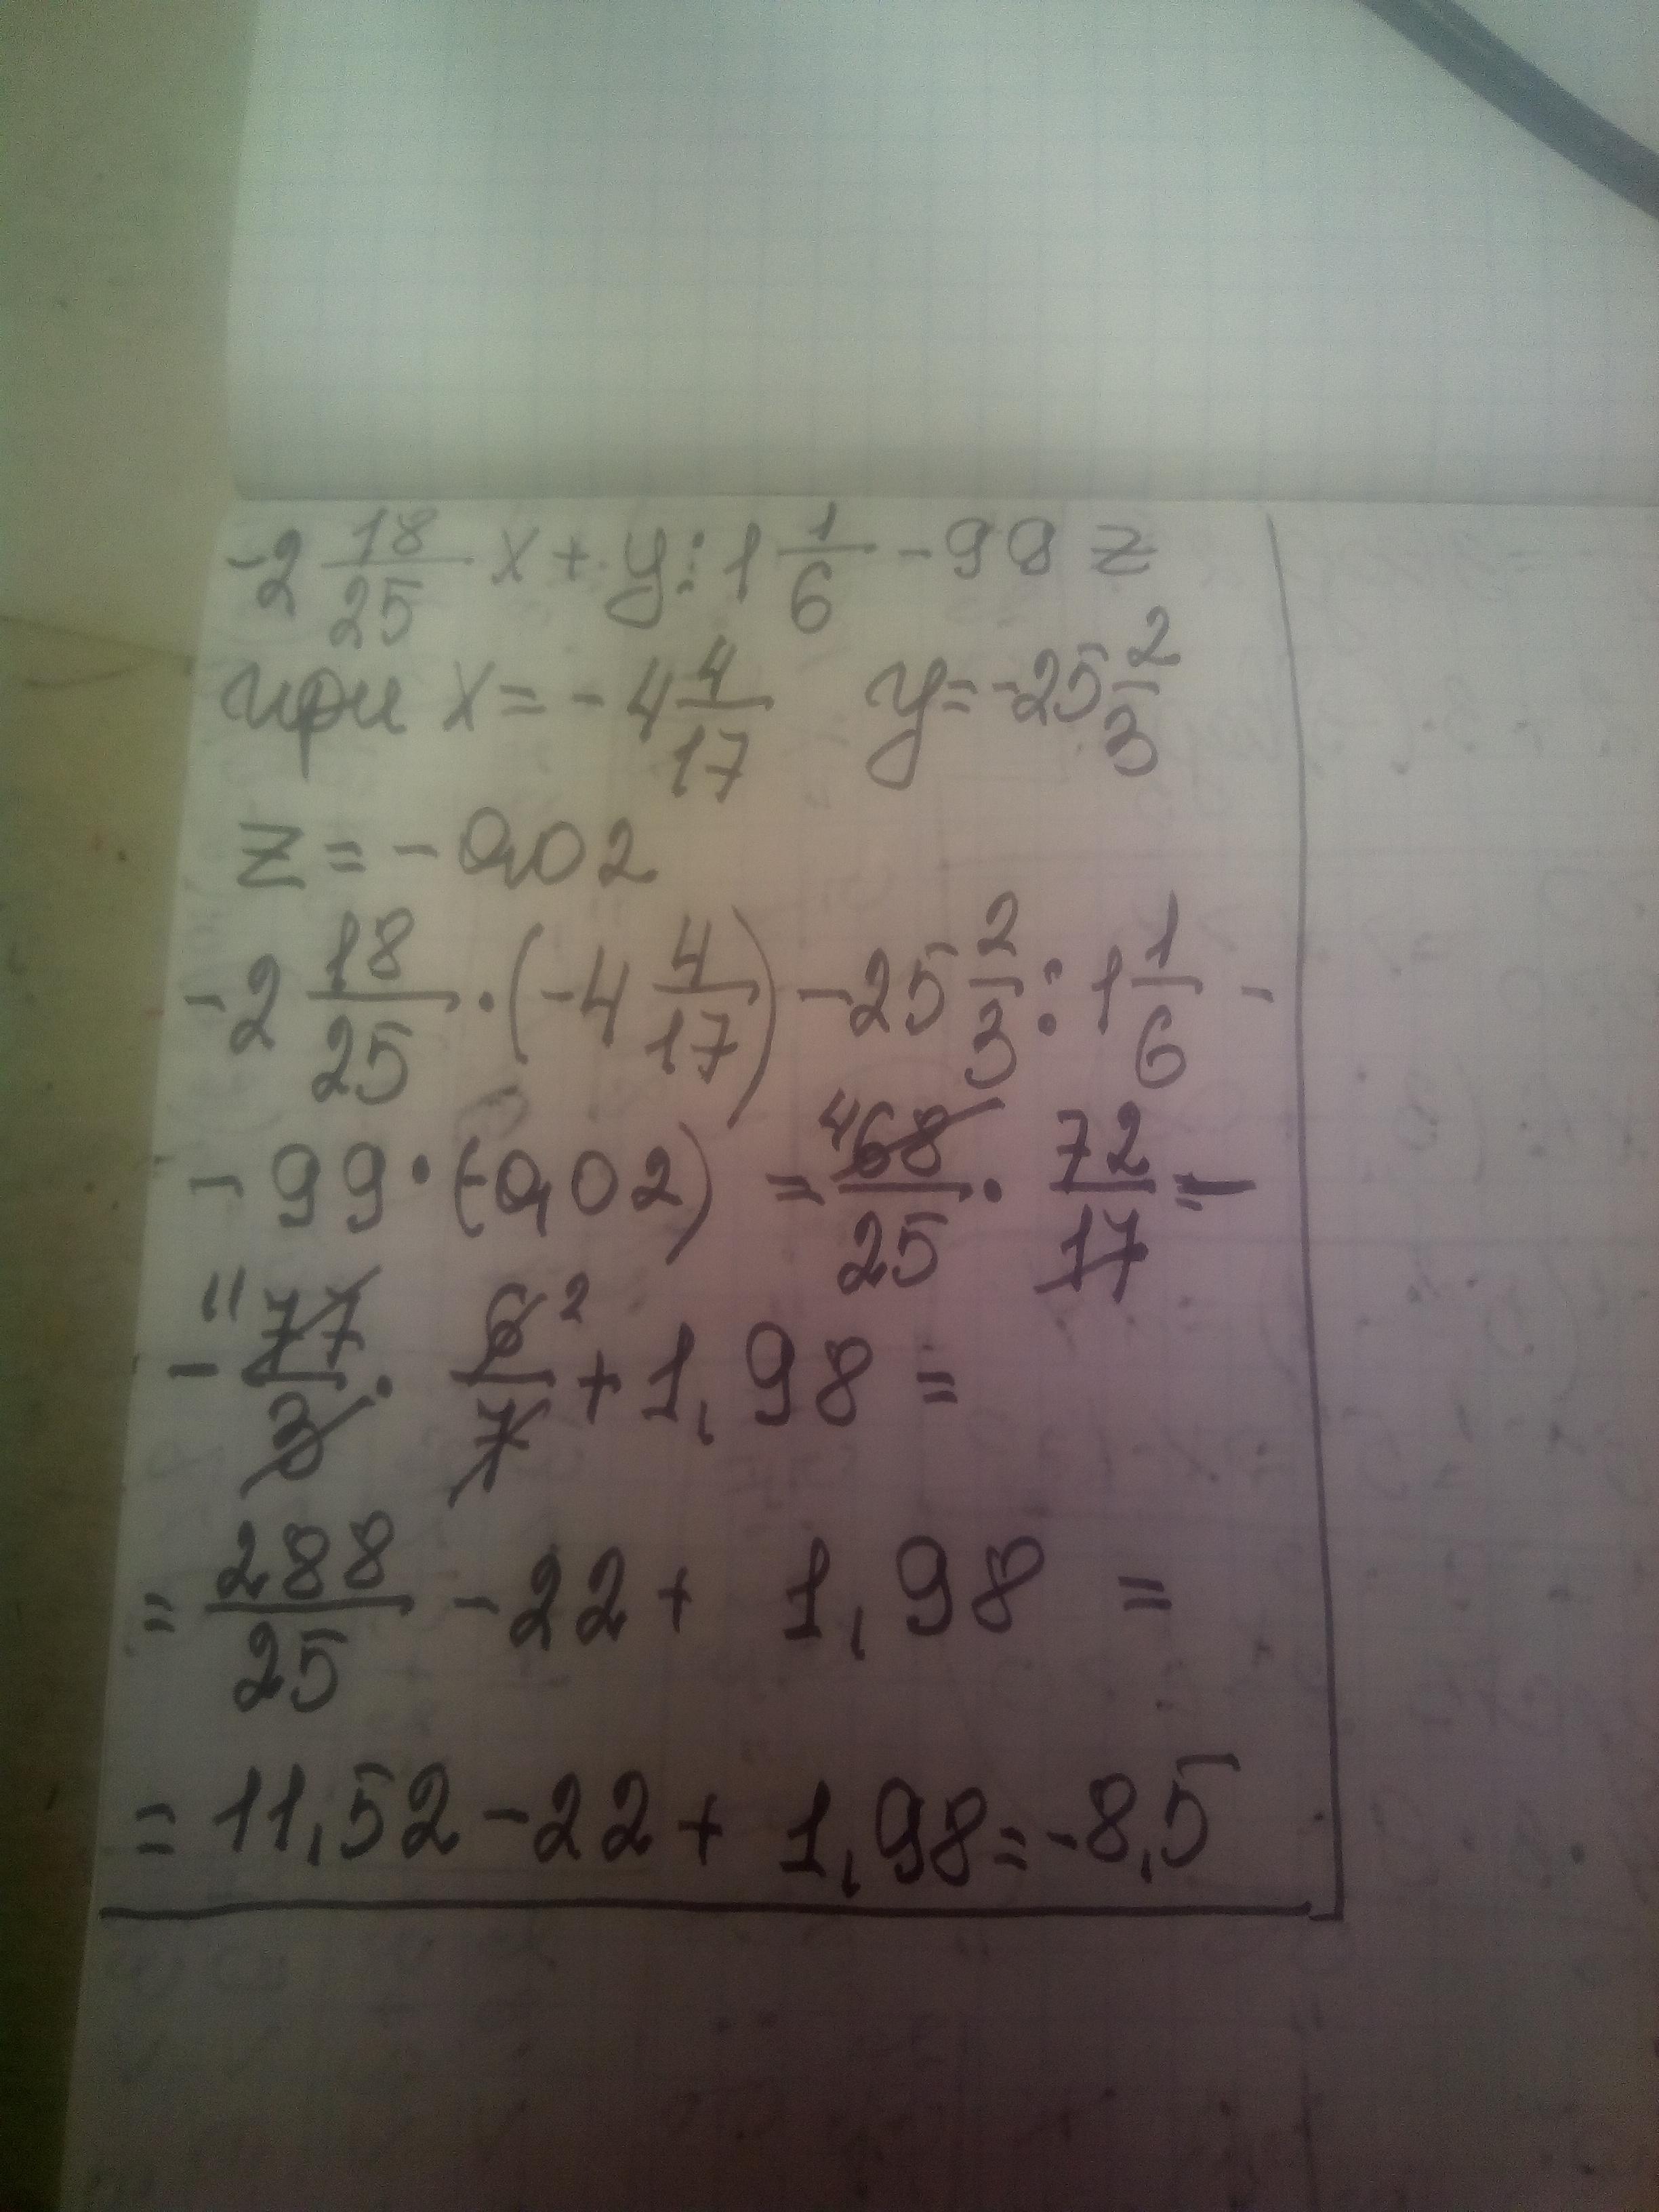 -2 18/25 x + y : 1 1/6 - 99 z
при x = - 4 4/17 y = -25 2/3
z = - 0,02
-2 18/25 · (-4 4/17) - 25 2/3 : 1 1/6 -
- 99 · (-0,02) = 4 68/25 · 72/17 = -
- 11 77/3 · 6/7 2 + 1,98 =
= 288/25 - 22 + 1,98 =
= 11,52 - 22 + 1,98 = -8,5